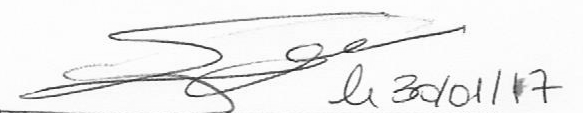 le 30/01/17